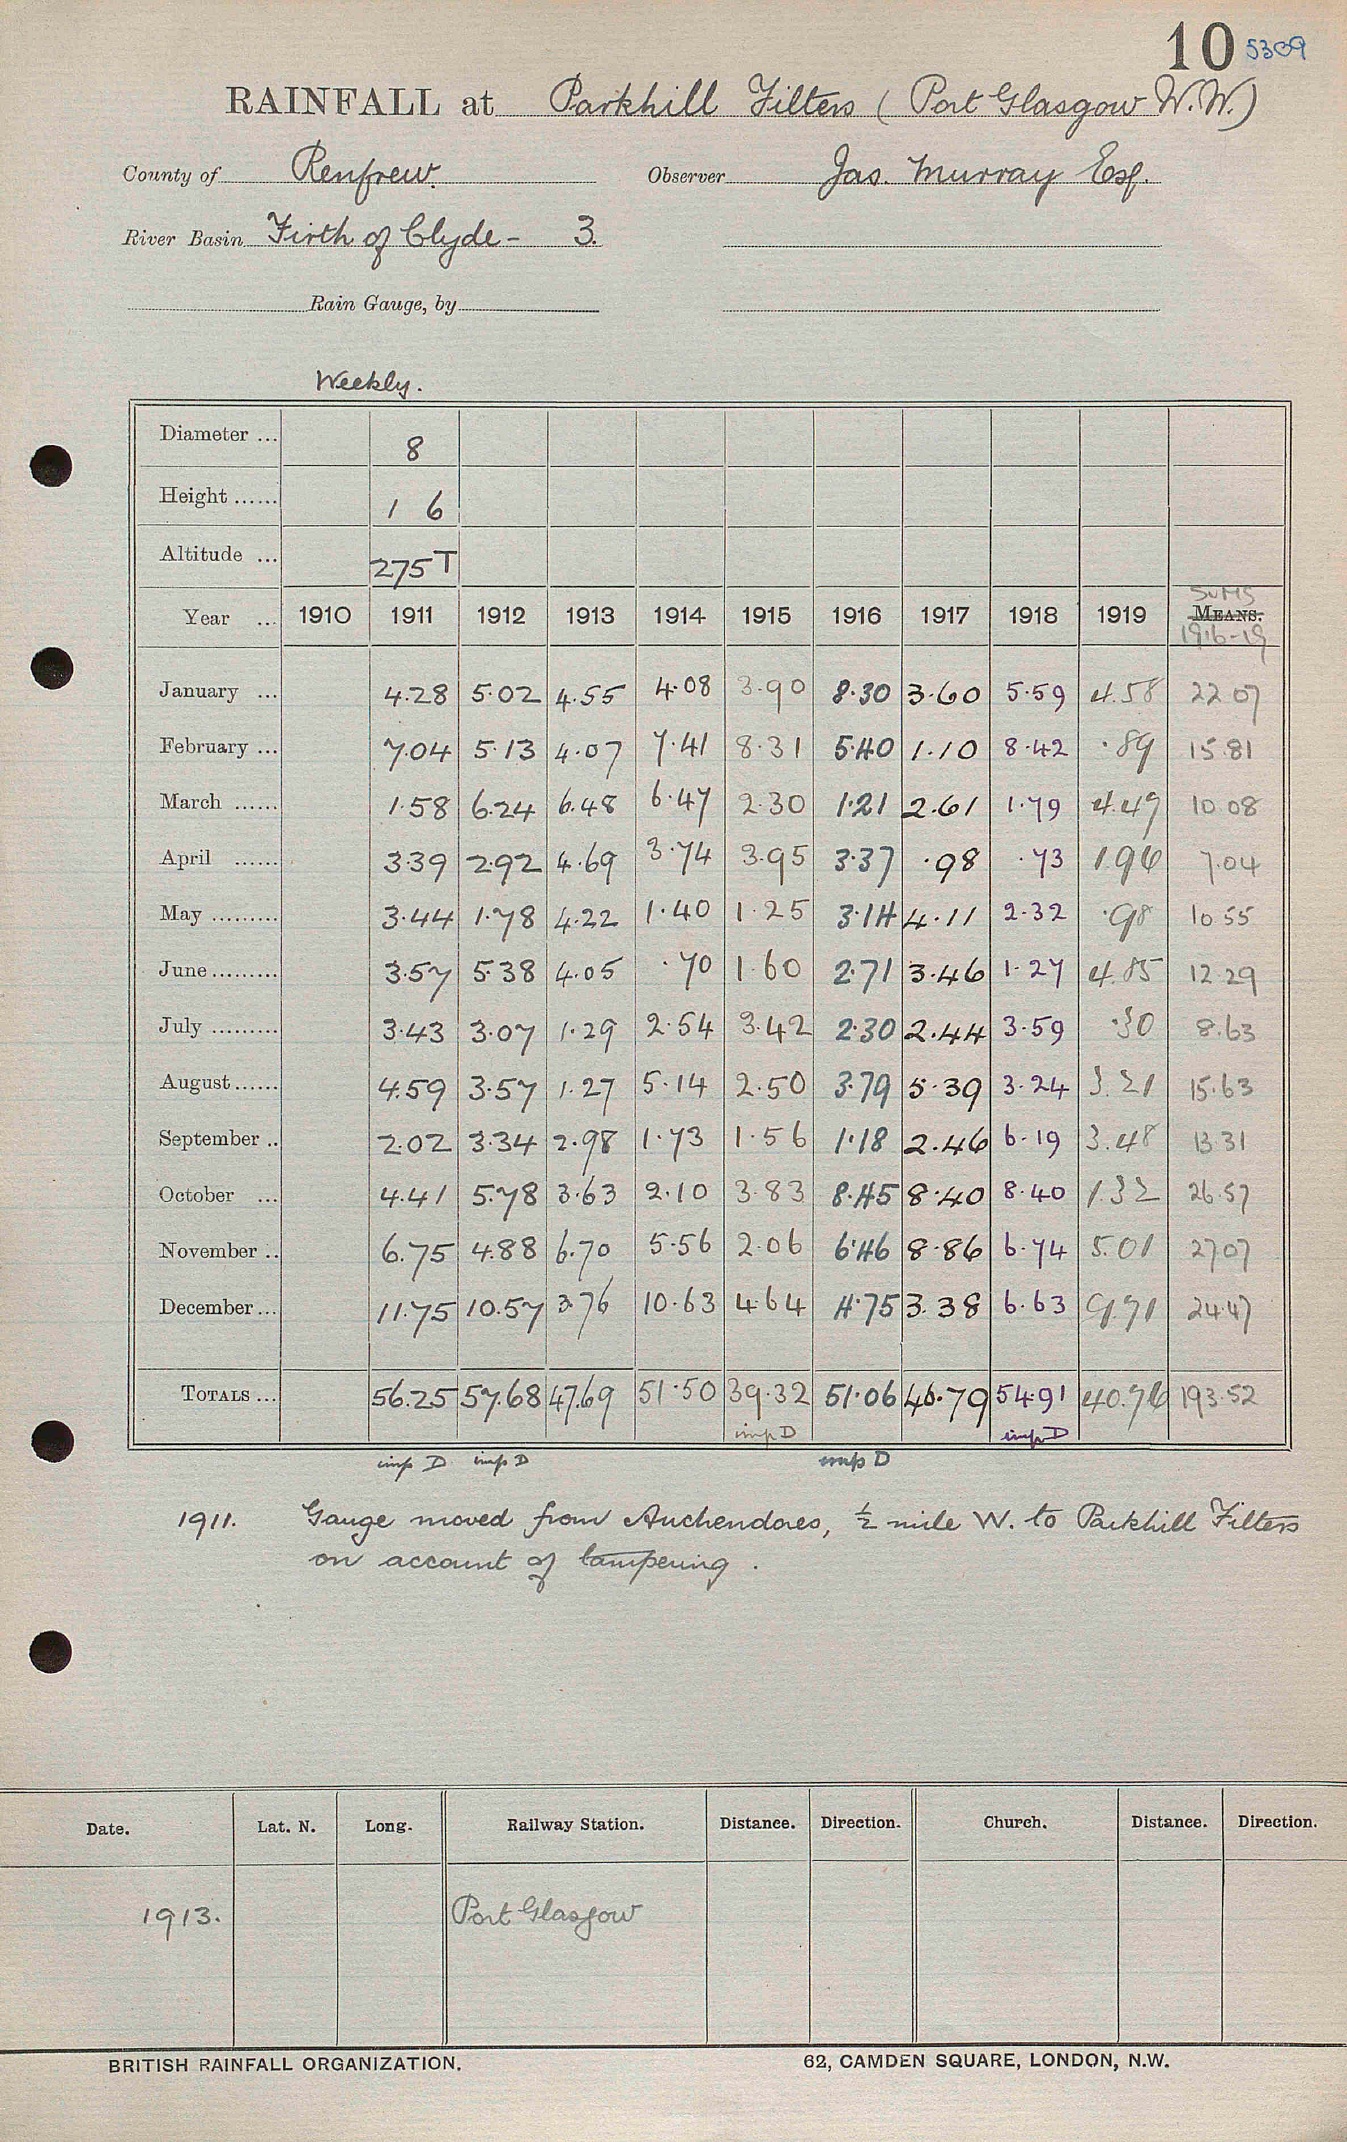 10 5309
RAINFALL at Parkhill Filters (Port Glasgow W.W.)
County of Renfrew. Observer Jas. Murray Esq.
River Basin Firth of Clyde - 3.
Rain Gauge, by
Weekly.
Diameter ... 8
Height ...... 1 6
Altitude ... 275 T
SUMS
Year ... 1910 1911 1912 1913 1914 1915 1916 1917 1918 1919 MEANS.
1916-19
January ... 4.28 5.02 4.55 4.08 3.90 8.30 3.60 5.59 4.58 22 07
February ... 7.04 5.13 4.07 7.41 8.31 5.40 1.10 8.42 .89 15.81
March ...... 1.58 6.24 6.48 6.47 2.30 1.21 2.61 1.79 4.49 10 08
April ...... 3.39 2.92 4.69 3.74 3.95 3.37 .98 .73 1.96 7.04
May ......... 3.44 1.78 4.22 1.40 1.25 3.14 4.11 2.32 .98 10 55
June ......... 3.57 5.38 4.05 .70 1.60 2.71 3.46 1.27 4.85 12.29
July ......... 3.43 3.07 1.29 2.54 3.42 2.30 2.44 3.59 .30 8.63
August ...... 4.59 3.57 1.27 5.14 2.50 3.79 5.39 3.24 3.21 15.63
September .. 2.02 3.34 2.98 1.73 1.56 1.18 2.46 6.19 3.48 13 31
October ... 4.41 5.78 3.63 2.10 3.83 8.45 8.40 8.40 1.32 26.57
November .. 6.75 4.88 6.70 5.56 2.06 6.46 8.86 6.74 5.01 27 07
December ... 11.75 10.57 3.76 10.63 4.64 4.75 3.38 6.63 9.71 24.47
TOTALS ... 56.25 57.68 47.69 51.50 39.32 51.06 46.79 54.91 40.76 193.52
imp D imp D
imp D imp D imp D
1911. Gauge moved from Auchendores, ½ mile W. to Parkhill Filters
on account of tampering.
Date. Lat. N. Long. Railway Station. Distance. Direction. Church. Distance. Direction.
1913. Port Glasgow
BRITISH RAINFALL ORGANIZATION. 62, CAMDEN SQUARE, LONDON, N.W.